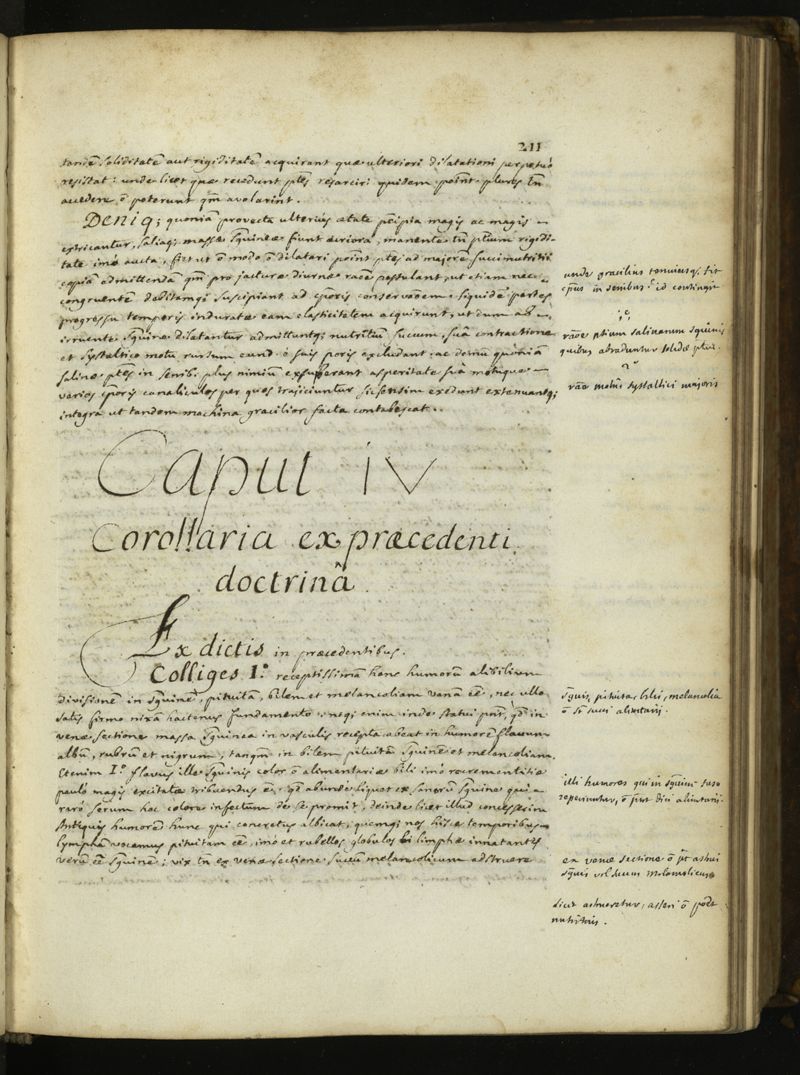 211
tandē soliditatē aut rigiditatē acquirant quæ ulteriori dilatationi perpetuo
resistat: unde licet quæ recedunt ptēs resarciri quidem point plures tn̄
accedere ō poterunt qm̄ avolarint.
Deniq; quoniā provecta ulterius ætate pcīpia magis ac magis
extricantur, saliaq; massæ sguineæ fiunt acriora, manente tn̄ ptium rigidi-
tate imò aucta, fiet ut ō modo ō dilatari point ptēs ad majorē succi nutritii
copiā admittendā qm̄ pro jacturæ diurnæ raōe postulant, ut etiam nec
congruentē suscipiant ad cporis conservaōem: siquidē partes
progressu temporis induratæ eam elasticitatem acquirunt, ut dum ab
irruente sguine dilatantur admittuntq; nutritiū succum, suâ contractione
et systaltico motu rursum eund ē suis poris excludant: ac demū quoniā
salinæ ptēs in senib. plus nimiū exsuperant asperitate suâ motuque
varios cporis canaliculos per quos trajiciuntur sic sensim exedunt extenuantq;
integra ut tandem machina gracilior facta contabescat.
unde gracilius tenuiusq; fit
cpus in senibus: id contingit
1º
raōe ptium salinarum sguinis
quibus abraduntur solidæ ptes.
2º
raōe motûs systaltici majoris
Caput IV
Corollaria ex præcedenti
doctrinâ
Ex dictis in præcedentibus.
Colliges I.º receptissimā hanc humorū alibilium
divisionē in sguinē, pituitā, bilem et melancoliam vanā ēē, nec ullo
satis firmo nixā hactenus fundamento: neq; enim inde statui pnt, qd in
venæ sectione massa sguinea in vasculis recepta abeat in humorē flavum
albū, rubrū et nigrum, tanqm̄ in bilem pituitā sguinē et melancoliam.
Etenim I.º flavus ille sguinis color ō alimentariæ bili imò recrementitiæ
paulò magis excitatæ tribuendus ē, qd abunde liquet ex sanorū sguine qui
rarò serum hoc colore infectum de se promit, deinde licet illud concesserim
Antiquis humorē hunc qui concretus albicat, quemq; nos hisce temporibus
lympham vocamus pituitam ēē, imò et rubellos globulos lymphæ innatantes
verū ēē sguinē; vix tn̄ ex venæ sectione succū melancolicum adstruere
sguis, pituita, bilis, melancolia
ō st succi alimtarii.
illi humores qui in sguine fuso
reperiuntur, ō pnt dici alimtarii.
ex venæ sectione ō pt astrui
sguis vel succus melancolicus
licet astrueretur, asseri ō posset
nutritius.